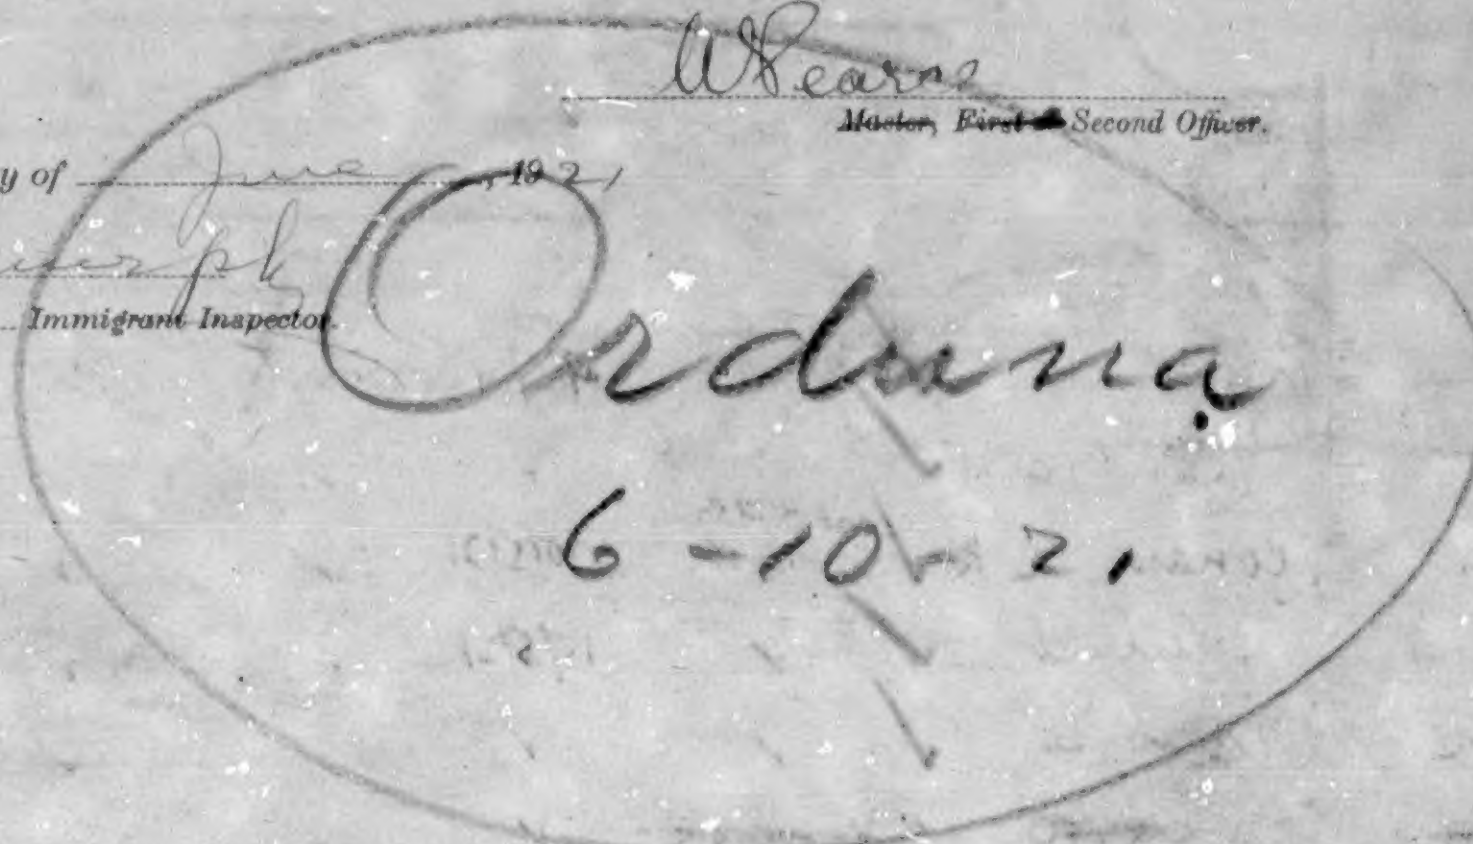 W Pearse
Master, First or Second Officer.
y of June, 1921
Immigrant Inspector.
Orduna
6-10-21